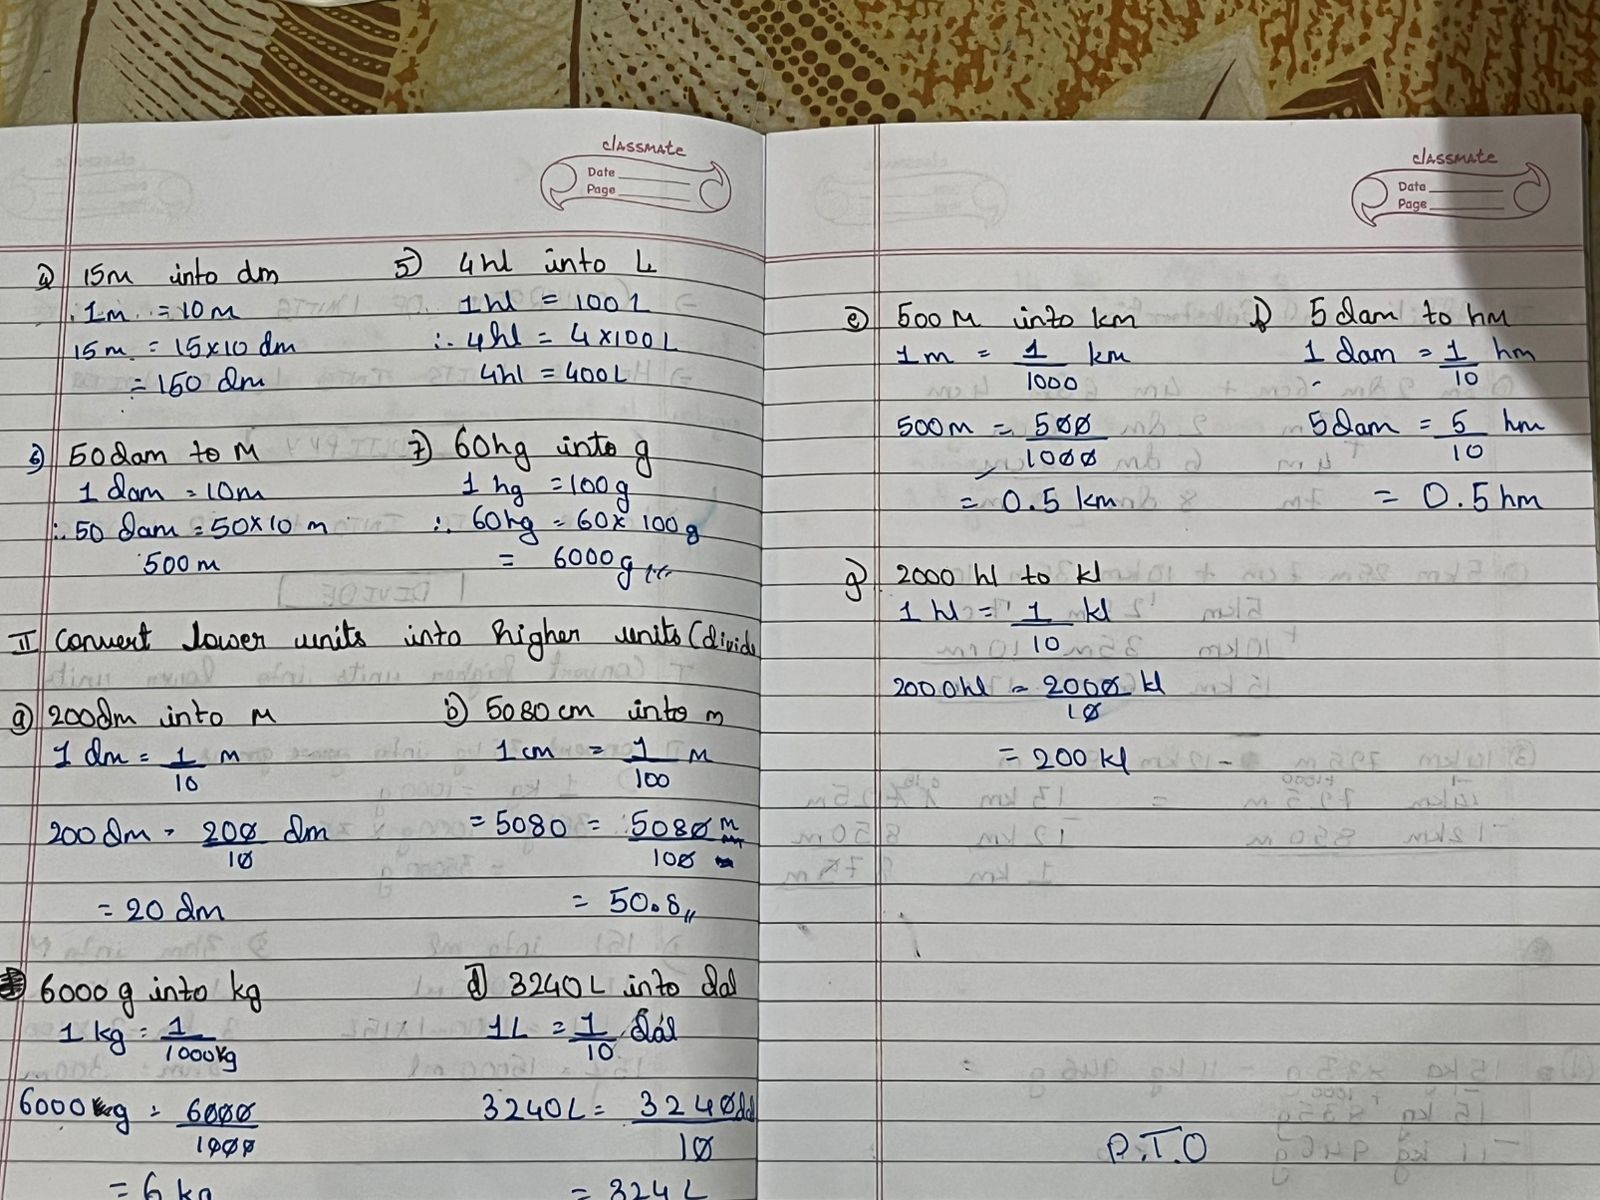 classmate
Date
Page
4) 15m into dm
∴ 1m = 10m
15m = 15×10 dm
= 150 dm
5) 4hl into L
1hl = 100L
∴ 4hl = 4×100L
4hl = 400L
6) 50dam to M
1 dam = 10m
∴ 50 dam = 50×10 m
500m
7) 60hg into g
1 hg = 100g
∴ 60hg = 60× 100g
= 6000g
II Convert lower units into higher units (divide
a) 200dm into M
1 dm = 1/10 m
200 dm = 200/10 dm
= 20 dm
b) 5080cm into m
1cm = 1/100 M
= 5080 = 5080/100 m
= 50.8
6000 g into kg
1 kg = 1/1000kg
6000 g = 6000/1000
= 6 kg
d) 3240L into dal
1L = 1/10 dal
3240L = 3240/10 dal
= 324L
classmate
Date
Page
e) 500M into km
1m = 1/1000 km
500m = 500/1000
= 0.5 km
f) 5 dam to hm
1 dam = 1/10 hm
5dam = 5/10 hm
= 0.5hm
g) 2000 hl to kl
1 hl = 1/10 kl
2000hl = 2000/10 kl
= 200 kl
P.T.O